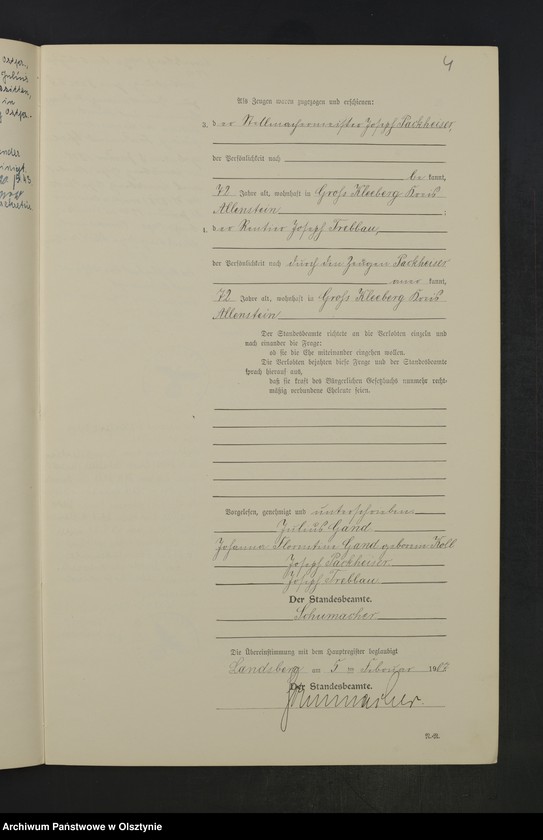 4
Als Zeugen waren zugezogen und erschienen:
3. der Stellmachermeister Joseph Packheiser,
der Persönlichkeit nach
be kannt,
72 Jahre alt, wohnhaft in Groß Kleeberg Kreis
Allenstein ;
4. der Rentier Joseph Treblau,
der Persönlichkeit nach durch den Zeugen Packheiser
aner kannt,
72 Jahre alt, wohnhaft in Groß Kleeberg Kreis
Allenstein
Der Standesbeamte richtete an die Verlobten einzeln und
nach einander die Frage:
ob sie die Ehe miteinander eingehen wollen.
Die Verlobten bejahten diese Frage und der Standesbeamte
sprach hierauf aus,
daß sie kraft des Bürgerlichen Gesetzbuchs nunmehr recht-
mäßig verbundene Eheleute seien.
Vorgelesen, genehmigt und unterschrieben
Julius Gand
Johanna Florentine Gand geborene Koll
Joseph Packheiser
Joseph Treblau
Der Standesbeamte.
Schumacher
Die Übereinstimmung mit dem Hauptregister beglaubigt
Landsberg am 5 ten Februar 19
Der Standesbeamte.
Schumacher.
N.-N.
Archiwum Państwowe w Olsztynie